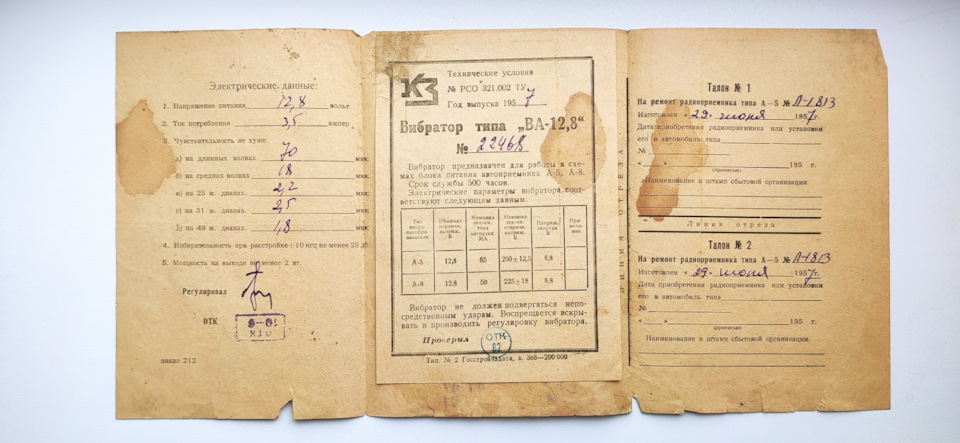 Электрические данные:
1. Напряжение питания 12,8 вольт
2. Ток потребления 3,5 ампер
3. Чувствительность не хуже:
а) на длинных волнах 70 мкв;
б) на средних волнах 18 мкв;
в) на 25 м. диапаз. 2,2 мкв;
г) на 31 м. диапаз. 2,5 мкв;
д) на 49 м. диапаз. 1,8 мкв;
4. Избирательность при расстройке ±10 кгц не менее 28 дб
5. Мощность на выходе не менее 2 вт.
Регулировал
ОТК
ОТК
заказ 212
КЗ
Технические условия
№ РСО 321.002 ТУ
Год выпуска 1957
Вибратор типа „ВА-12,8“
№ 22468
Вибратор предназначен для работы в схе-
мах блока питания автоприемника А-5, А-8.
Срок службы 500 часов.
Электрические параметры вибратора соот-
ветствуют следующим данным:
Тип вибро преобра- зователя Номинал. первичн. напряж. В Номинал. значен. тока нагрузки МА Номинал. значен. вторичн. напряж. В Напряж. звртыв В При- меча- ние
А-5 12,8 65 250±12,5 8,8
А-8 12,8 50 225±18 8,8
Вибратор не должен подвергаться непо-
средственным ударам. Воспрещается вскры-
вать и производить регулировку вибратора.
Проверил ОТК 82
Тип. № 2 Госстройиздата, з. 368—200 000
ЛИНИЯ ОТРЕЗА
Талон № 1
На ремонт радиоприемника типа А—5 № Л-1813
Изготовлен «29» июня 1957 г.
Дата приобретения радиоприемника или установки
его в автомобиль типа
№
« » 195 г.
(прописью)
Наименование и штамп сбытовой организации
Линия отреза
Талон № 2
На ремонт радиоприемника типа А—5 № Л-1813
Изготовлен «29» июня 1957 г.
Дата приобретения радиоприемника или установки
его в автомобиль типа
№
« » 195 г.
(прописью)
Наименование и штамп сбытовой организации